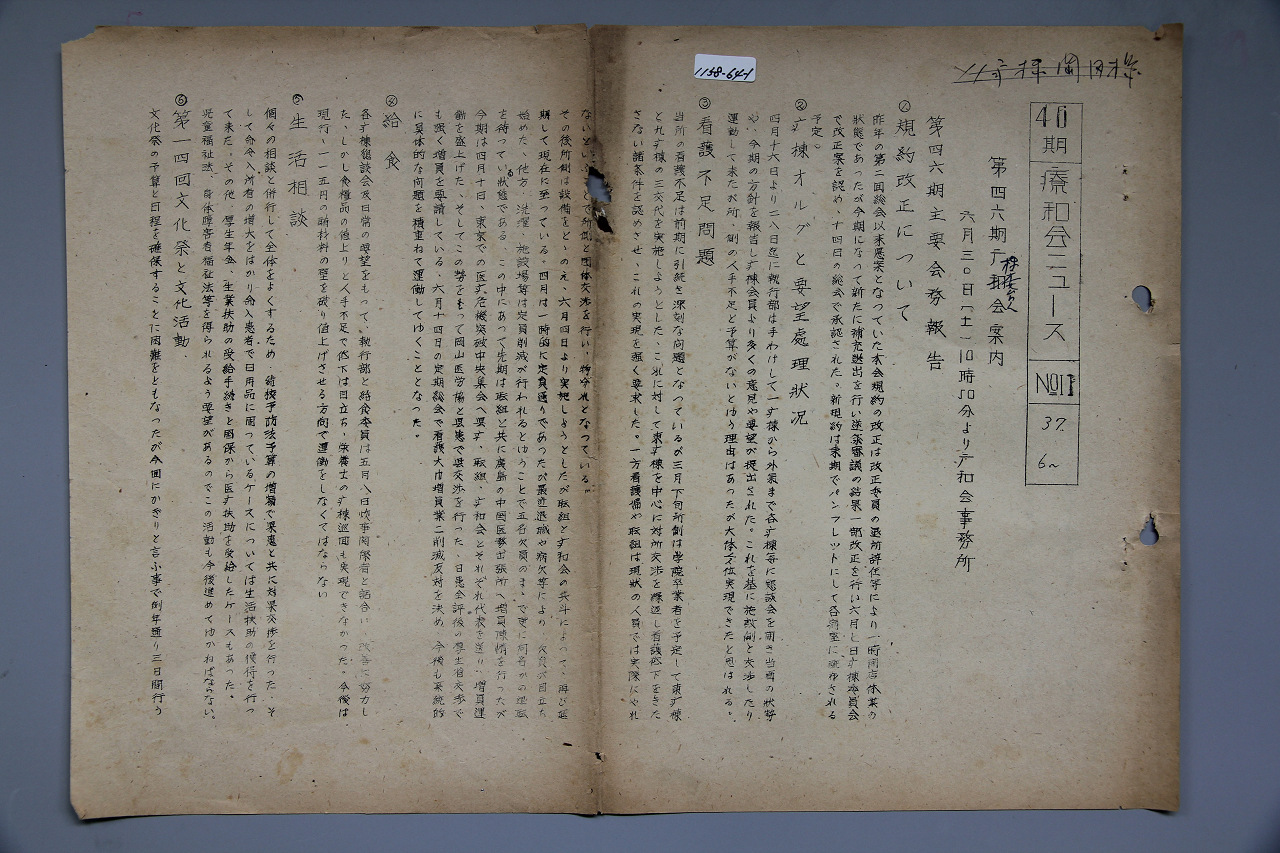 1158-64-1
40期療和会ニュース
No11
37.
6~
第四六期
会案内
六月三〇日(土)一〇時50分より 和会事務所
第四六期主要会務報告
① 規約改正について
昨年の第二回総会以来懸案となっていた本会規約の改正は改正委員の退所辞任等により一時開店休業の
状態であったが今期になって新たに補充選出を行い逐条審議の結果一部改正を行い六月七日疒棟委員会
で改正案を認め、十四日の総会で承認された。新規約は来期でパンフレットにして各病室に配布される
予定。
② 疒棟オルグと要望處理状況
四月十六日より二八日迄に執行部は手わけして一疒棟から外気まで各疒棟毎に懇談会を開き当面の状勢
や、今期の方針を報告し疒棟会員より多くの意見や要望が提出された。これを基に施設側と交渉したり
運動して来たが所、側の人手不足と予算がないとゆう理由はあったが大体
実現できたと思はれる。
③ 看護不足問題
当所の看護不足は前期に引続き深刻な問題となっているが三月下旬所側は学院卒業者を予定して東疒棟
と九疒棟の三交代を実施しようとした、これに対して東疒棟を中心に対所交渉を
看護低下をきた
さない諸条件を認めさせ、これの実現を強く要求した。一方看護婦や職組は現状の人員では実際にやれ
ないということで所側と団体交渉を行い、物分れとなっている。
その後所側は設備をととのえ、六月四日より実施しようとしたが職組と疒和会の共斗によって、再び延
期して現在に至っている。四月は一時的に定員通りであったが最近退職や病欠等により、欠員が目立ち
始めた、他方、洗濯、施設場等は定員削減が行われるとゆうことで五名欠員のまゝで更に何名かの退職
を待っている状態である、この中にあって先期は職組と共に広島の中国医務出張所へ増員陳情を行ったが
今期は四月十日、東京での医疒危機突破中央集会へ県疒、職組、疒和会とそれぞれ代表を送り、増員運
動を盛上げた、そしてこの勢をもって岡山医労協と県患で県交渉を行った、日患全評後の厚生省交渉で
も強く増員を要請している、六月十四日の定期総会で看護大巾増員業二削減反対を決め、今後も系統的
に具体的な問題を積重ねて運動してゆくこととなった。
④ 給食
各疒棟懇談会及日常の要望をもって、執行部と給食委員は五月八日炊事関係者と話合い、改善に努力し
た、しかし食糧品の値上りと人手不足で低下は目立ち、栄養士の疒棟巡回も実現できなかった。今後は
現行、一一五円の
材料の壁を破り値上げさせる方向で運動をしなくてはならない
⑤ 生活相談
個々の相談と併行して全体をよくするため、結核予防法予算の増額で県患と共に対県交渉を行った、そ
して命令入所者の増大をはかり命令入患者で日用品に困っているケースについては生活扶助の獲得を行っ
て来た。その他、厚生年金、生業扶助の受給手続きと国保から医疒扶助を受給したケースもあった。
児童福祉法、身体障害者福祉法等を得られるよう要望があるのでこの活動も今後進めてゆかねばならない。
⑥ 第一四回文化祭と文化活動
文化祭の予算と日程を確保することに困難をともなったが今回にかぎりと言ふ事で例年通り三日間行う